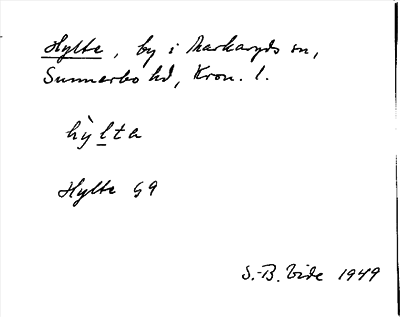 Hylte, by i Markaryds sn,
Sunnerbo hd, Kron. l.
hỳlta
Hylte G9
S.-B. Vide 1949